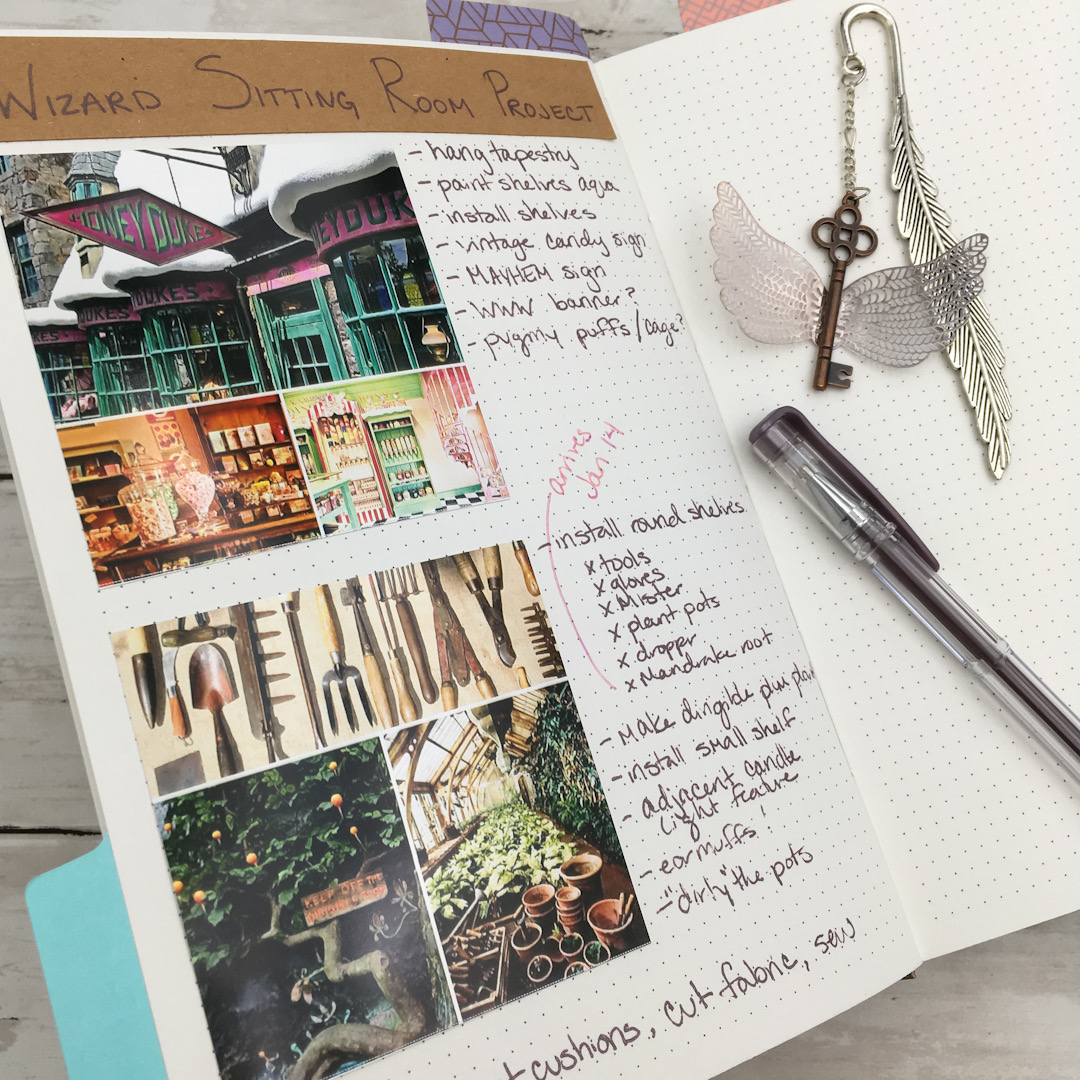 WIZARD SITTING ROOM PROJECT
- hang tapestry
- paint shelves aqua
- install shelves
- vintage candy sign
- MAYHEM sign
- WWW banner?
- pygmy puffs/cage?
HONEYDUKES
EYDUK
DUKES
arrives
Jan 14
- install round shelves
x tools
x gloves
x Mister
x plant pots
x dropper
x Mandrake root
- Make dirigible plum
- install small shelf
- adjacent candle
light feature
- earmuffs!
- "dirty" the pots
KEEP OFF THE
cushions, cut fabric, sew